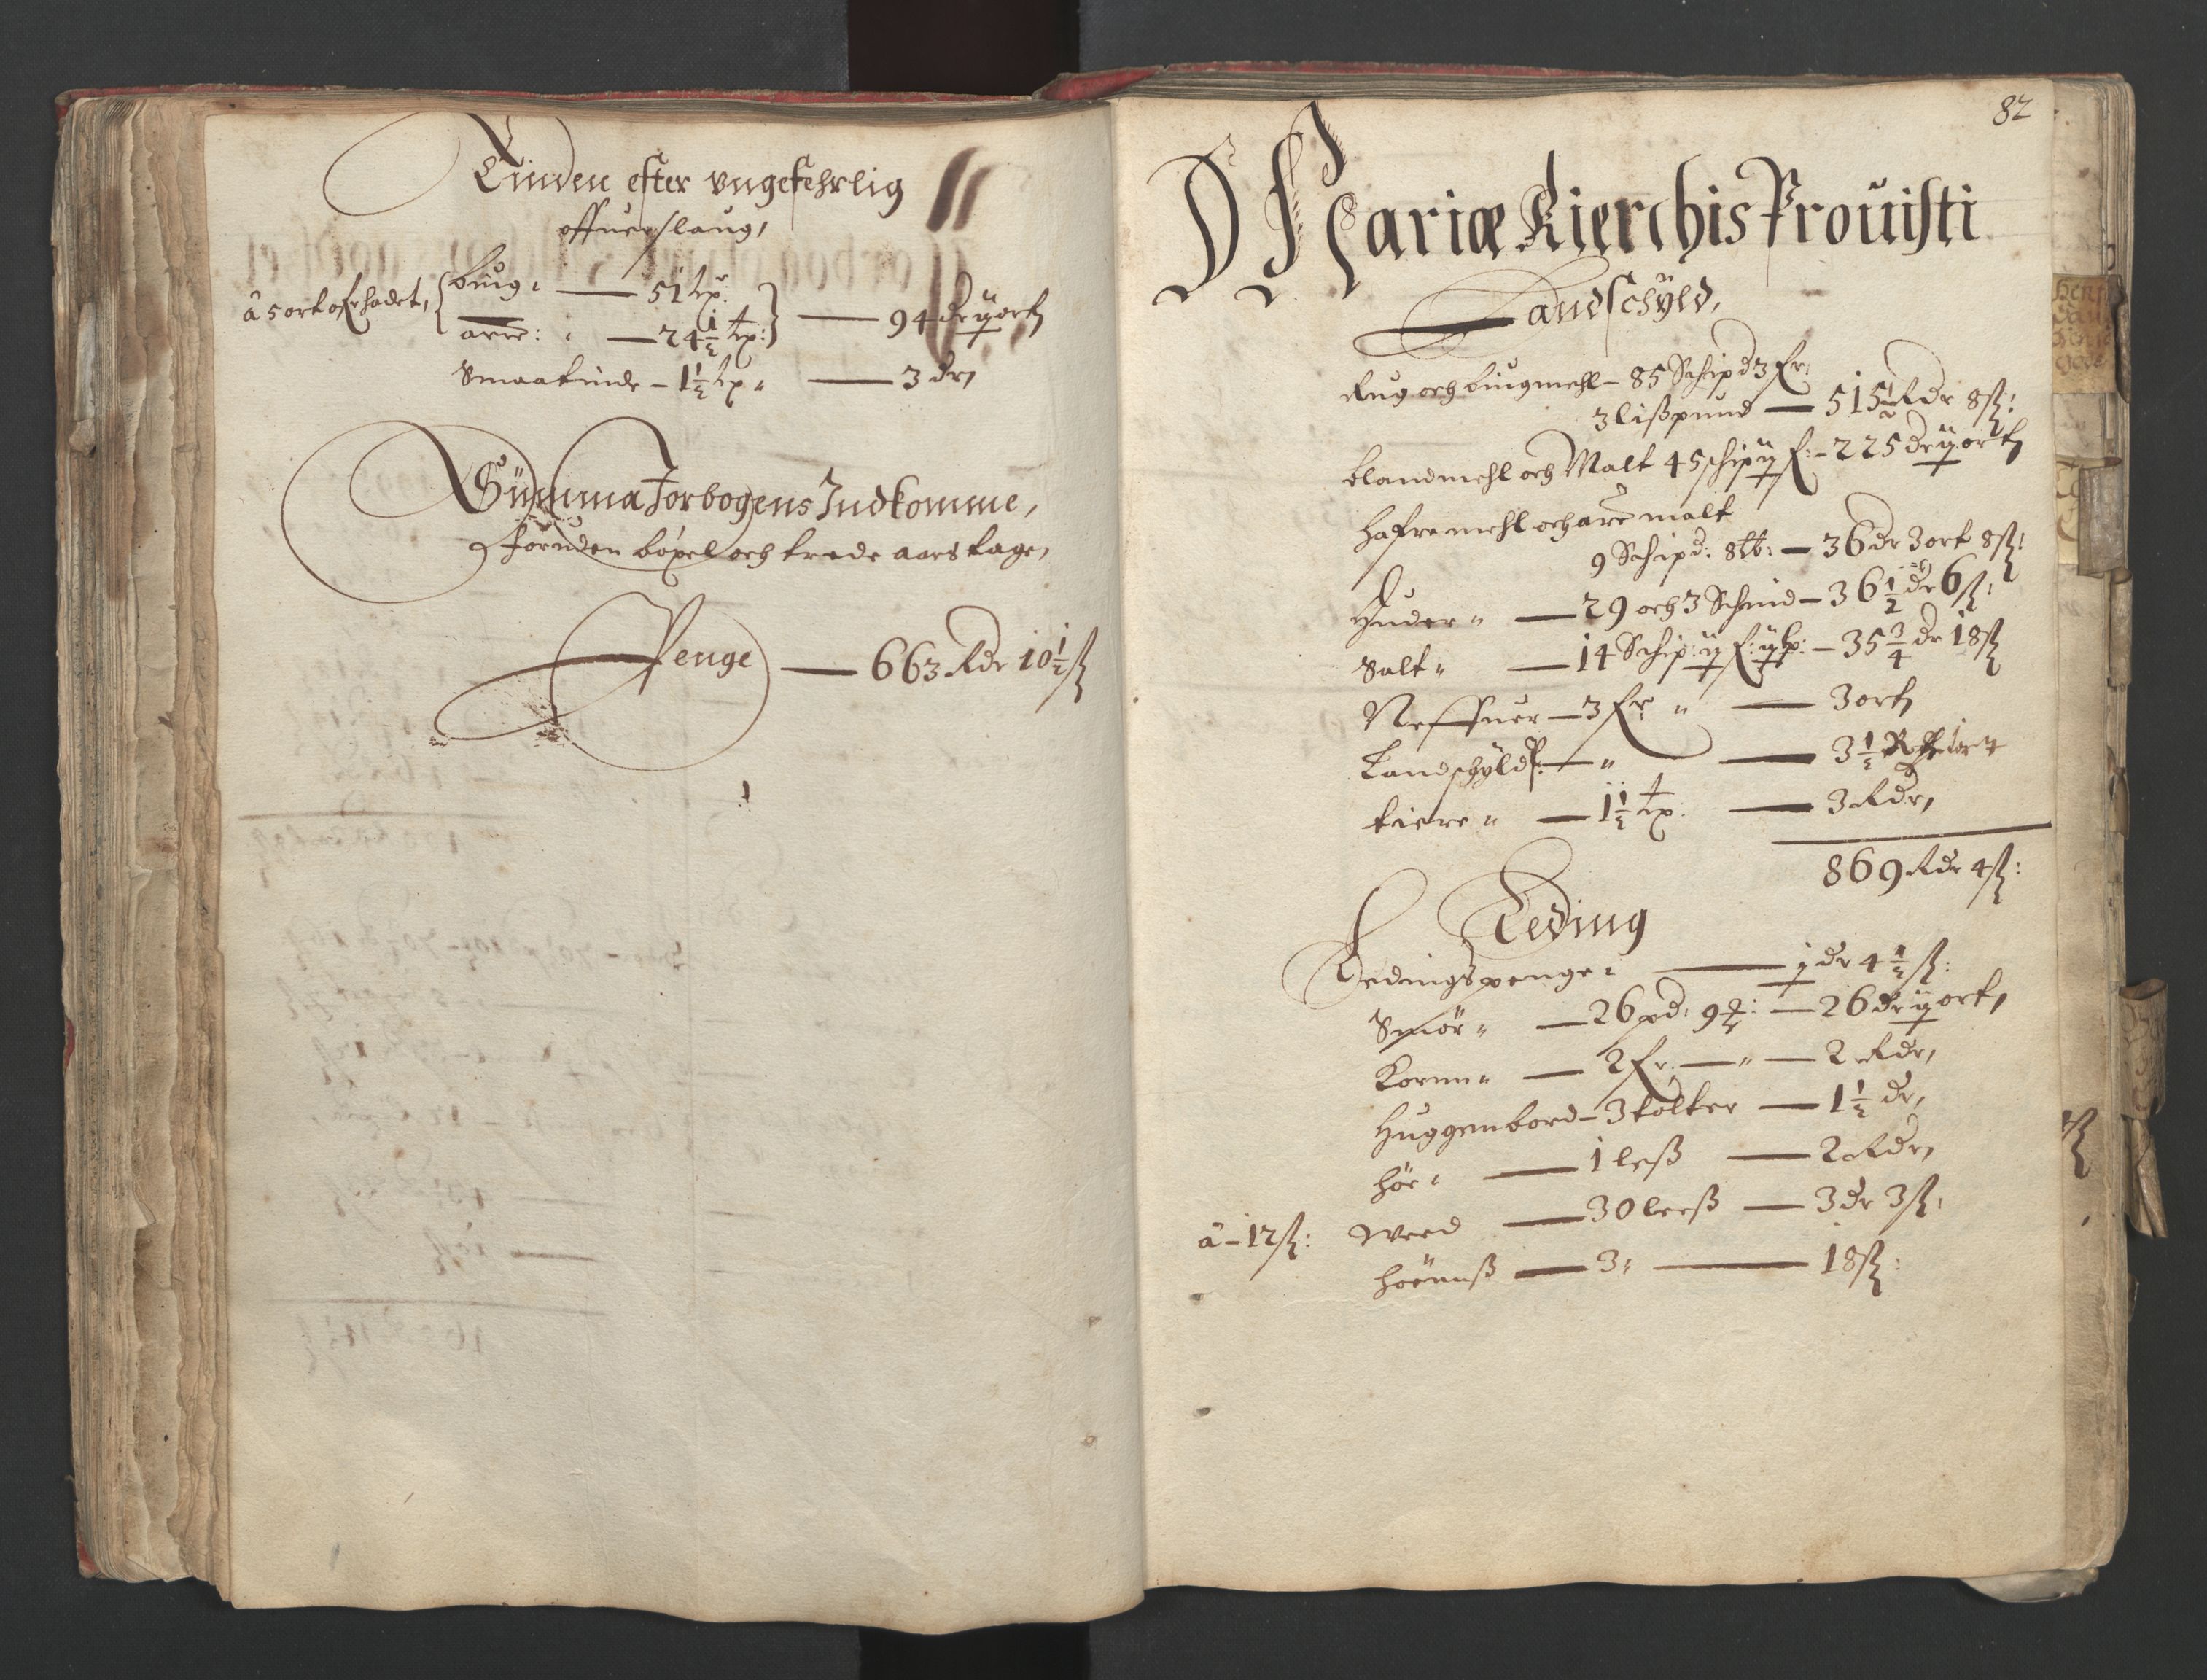 Tinden efter vngefehrlig
offuerslaug,
à 5 ort ofrhadet, biug: — 51 tyr: — 94 dr ij ort
arre: — 24 1/2 tp:
Smaatinde — 1 1/2 tp — 3 dr,
Summa Jorbogens Indkomme,
foruden böxel och trede aars tage,
Penge — 663 Rdr 10 1/2 ß
82
D Mariæ Kierchis Prouisti
Landschyld,
Rug och biugmehl — 85 Schipd 3 fr:
3 lißpund — 515 1/2 Rdr 8 ß:
blandmehl och Malt 45 schip ij f: — 225 dr ij ort
hafremehl och arre malt
9 Schipd: 8 tt: — 36 dr 3 ort 8 ß:
Huder — 29 och 3 Schind — 36 1/2 dr 6 ß:
Salt — 14 Schip: ij f: ij p: — 35 3/4 dr 18 ß
Neffuer — 3 fr — 3 ort
Landschyld p: — 3 1/2 R
tiere — 1 1/2 tp: — 3 Rdr,
869 Rdr 4 ß:
Leding
Ledingspenge: — j dr 4 1/2 ß:
Smör — 26 pd: 9 — 26 dr ij ort,
Kornn — 2 fr — 2 Rdr,
Huggenbord — 3 tolter — 1 1/2 dr,
hör — 1 leß — 2 Rdr,
à – 12 ß: Weed — 30 leeß — 3 dr 3 ß:
hoënnß — 3 — 18 ß: